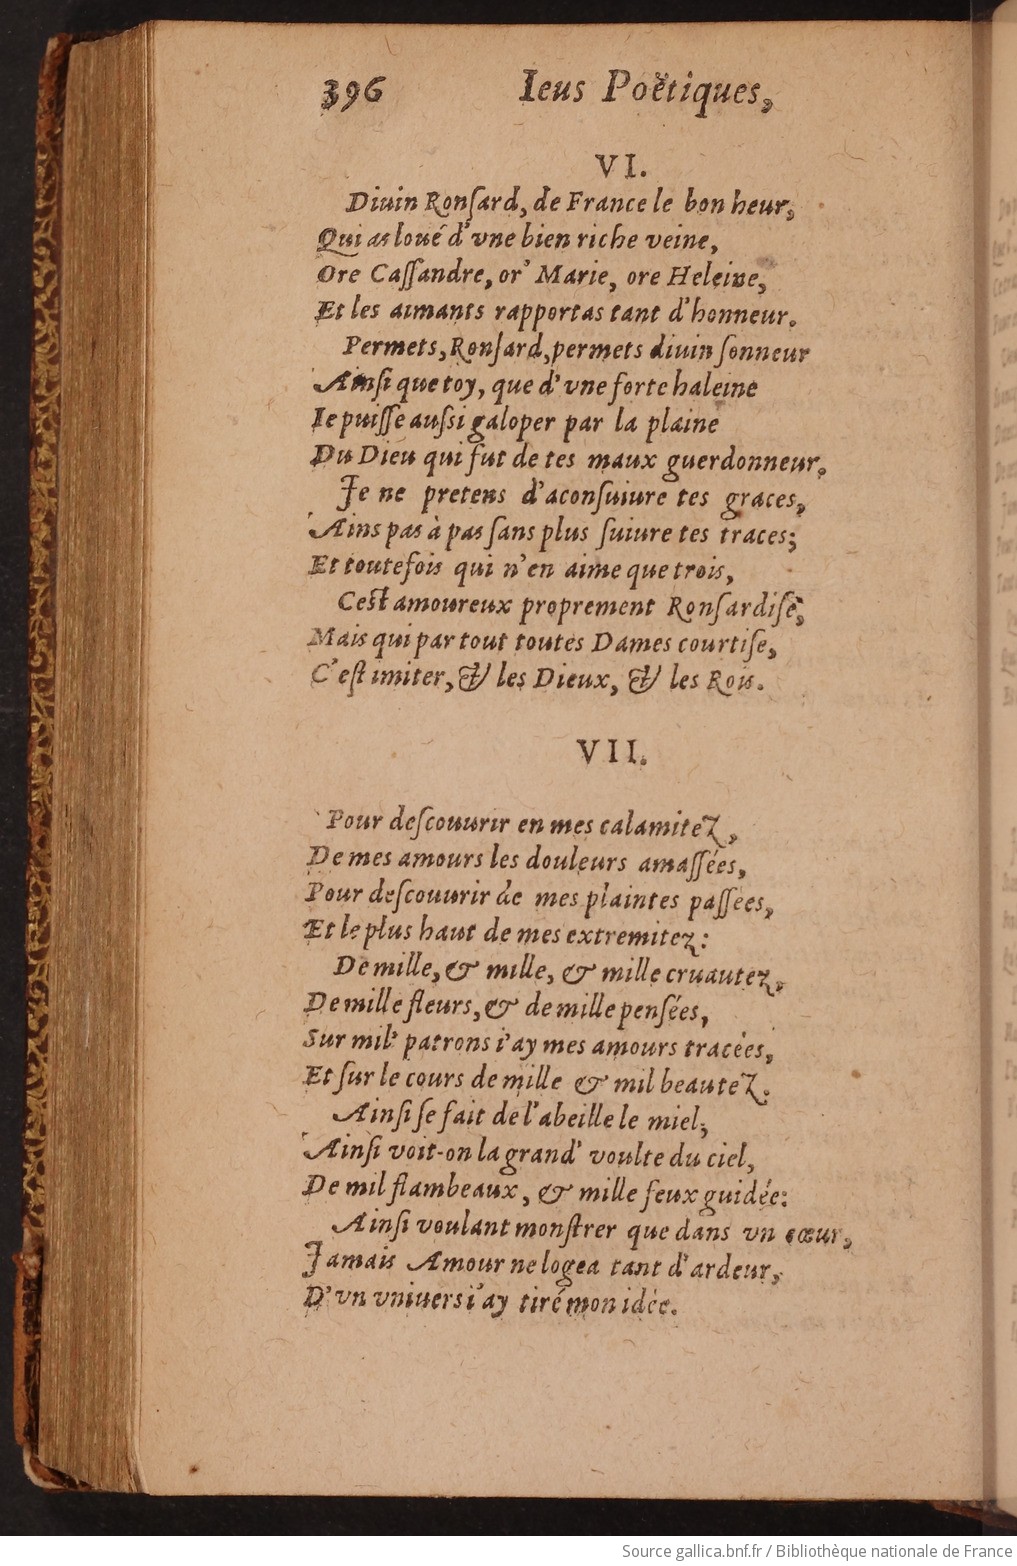 396 Ieus Poëtiques,
VI.
Diuin Ronſard, de France le bon heur,
Qui as loué d'vne bien riche veine,
Ore Caſſandre, or' Marie, ore Heleine,
Et les aimants rapportas tant d'honneur.
Permets, Ronſard, permets diuin ſonneur
Ainſi que toy, que d'vne forte haleine
Ie puiſſe auſsi galoper par la plaine
Du Dieu qui fut de tes maux guerdonneur.
Je ne pretens d'aconſuiure tes graces,
Ains pas à pas ſans plus ſuiure tes traces;
Et toutefois qui n'en aime que trois,
Ceſt amoureux proprement Ronſardiſe,
Mais qui par tout toutes Dames courtiſe,
C'eſt imiter, & les Dieux, & les Rois.
VII.
Pour deſcouurir en mes calamitez,
De mes amours les douleurs amaſſées,
Pour deſcouurir de mes plaintes paſſees,
Et le plus haut de mes extremitez:
De mille, & mille, & mille cruautez,
De mille fleurs, & de mille penſées,
Sur mil' patrons i'ay mes amours tracées,
Et ſur le cours de mille & mil beautez.
Ainſi ſe fait de l'abeille le miel,
Ainſi voit-on la grand' voulte du ciel,
De mil flambeaux, & mille feux guidée:
Ainſi voulant monſtrer que dans vn cœur,
Jamais Amour ne logea tant d'ardeur,
D'vn vniuers i'ay tiré mon idée.
Source gallica.bnf.fr / Bibliothèque nationale de France